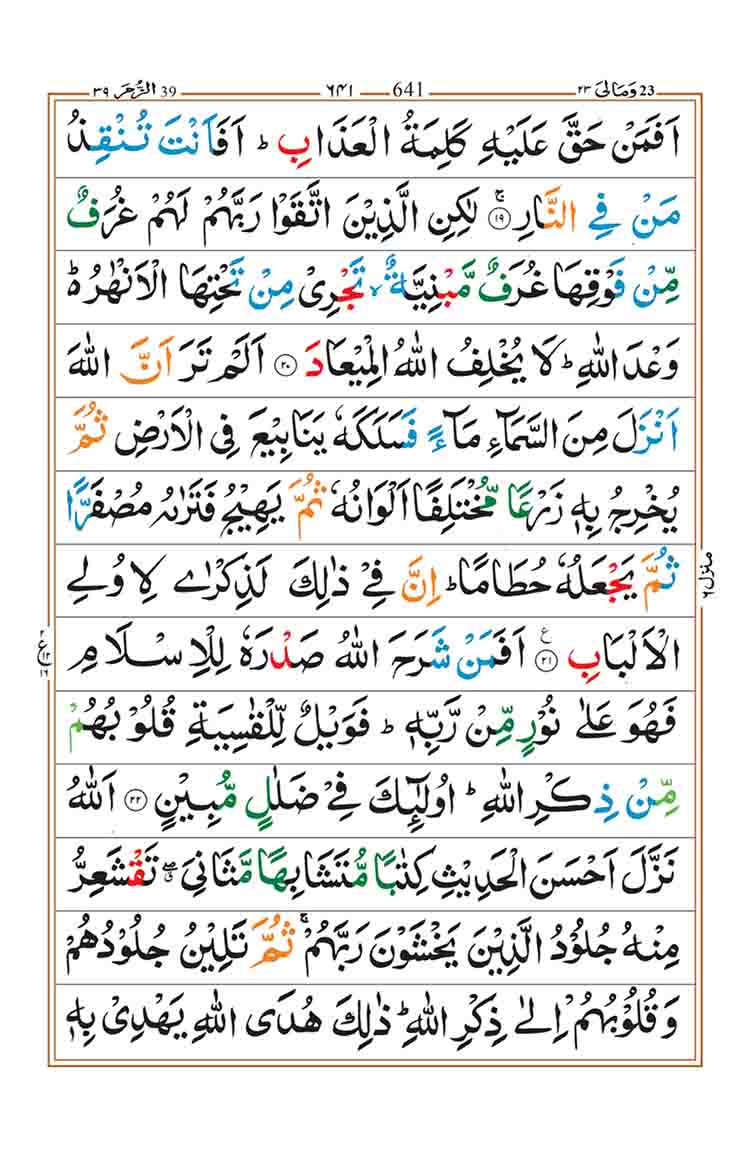 39 الزُّمَر ٣٩ ٦٤١ 641 ٢٣ وَمَالِىَ 23
اَفَمَنْ حَقَّ عَلَيْهِ كَلِمَةُ الْعَذَابِ ؕ اَفَاَنْتَ تُنْقِذُ
مَنْ فِى النَّارِ ۚ‏ ﴿۱۹﴾ لٰكِنِ الَّذِيْنَ اتَّقَوْا رَبَّهُمْ لَهُمْ غُرَفٌ
مِّنْ فَوْقِهَا غُرَفٌ مَّبْنِيَّةٌ ۙ تَجْرِىْ مِنْ تَحْتِهَا الْاَنْهٰرُ ؕ
وَعْدَ اللّٰهِ ؕ لَا يُخْلِفُ اللّٰهُ الْمِيْعَادَ ﴿۲۰﴾ اَلَمْ تَرَ اَنَّ اللّٰهَ
اَنْزَلَ مِنَ السَّمَآءِ مَآءً فَسَلَكَهٗ يَنَابِيْعَ فِى الْاَرْضِ ثُمَّ
يُخْرِجُ بِهٖ زَرْعًا مُّخْتَلِفًا اَلْوَانُهٗ ثُمَّ يَهِيْجُ فَتَرٰٮهُ مُصْفَرًّا
ثُمَّ يَجْعَلُهٗ حُطَامًا ؕ اِنَّ فِىْ ذٰلِكَ لَذِكْرٰى لِاُولِى
الْاَلْبَابِ ﴿۲۱﴾ ع اَفَمَنْ شَرَحَ اللّٰهُ صَدْرَهٗ لِلْاِسْلَامِ
فَهُوَ عَلٰى نُوْرٍ مِّنْ رَّبِّهٖ ؕ فَوَيْلٌ لِّلْقٰسِيَةِ قُلُوْبُهُمْ
مِّنْ ذِكْرِ اللّٰهِ ؕ اُولٰٓٮِٕكَ فِىْ ضَلٰلٍ مُّبِيْنٍ ﴿۲۲﴾ اَللّٰهُ
نَزَّلَ اَحْسَنَ الْحَدِيْثِ كِتٰبًا مُّتَشَابِهًا مَّثَانِىَ ۖ تَقْشَعِرُّ
مِنْهُ جُلُوْدُ الَّذِيْنَ يَخْشَوْنَ رَبَّهُمْ ۚ ثُمَّ تَلِيْنُ جُلُوْدُهُمْ
وَقُلُوْبُهُمْ اِلٰى ذِكْرِ اللّٰهِ ؕ ذٰلِكَ هُدَى اللّٰهِ يَهْدِىْ بِهٖ
منزل ٦
ع